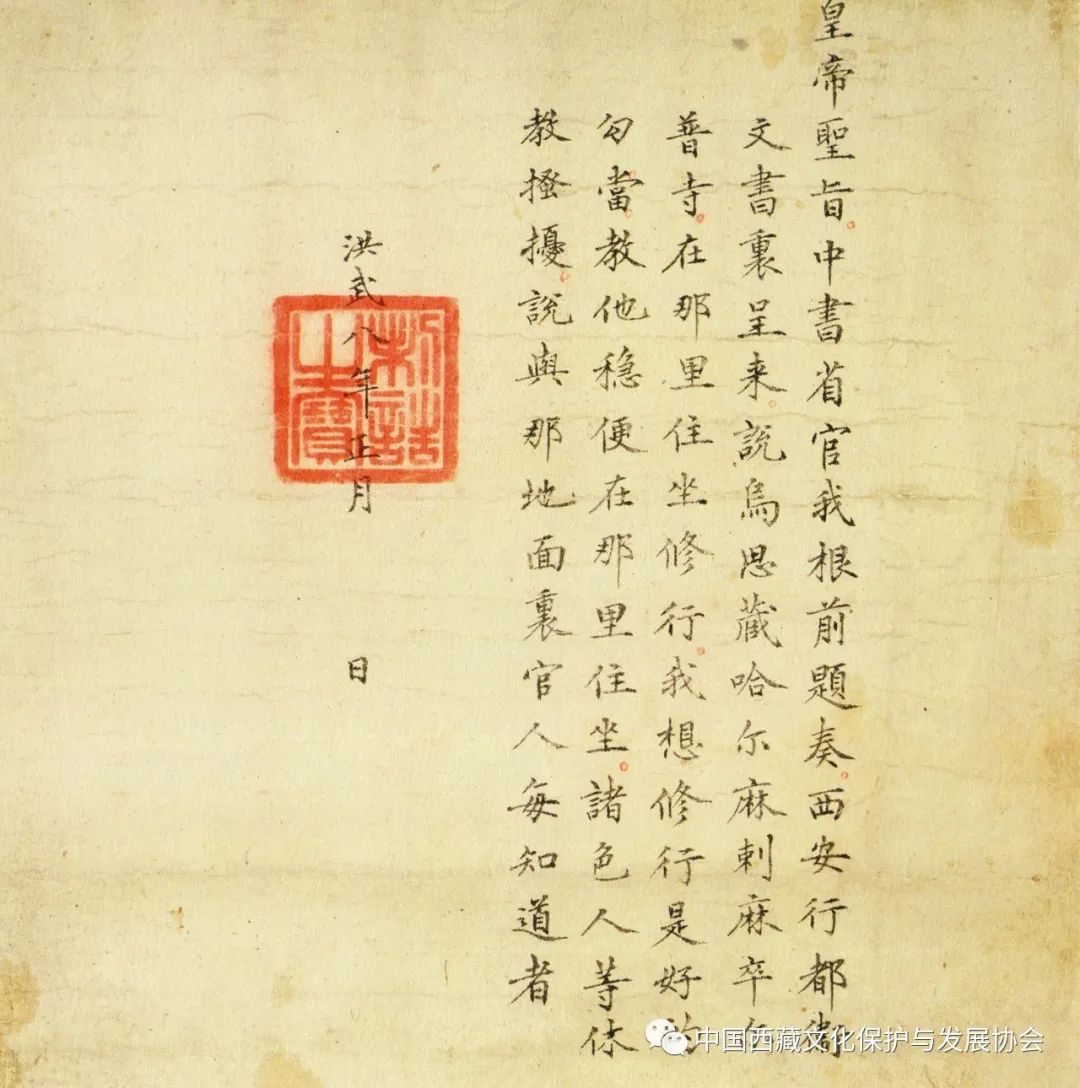 皇帝聖旨中書省官我根前題奏西安行都衛
文書裏呈来說烏思藏哈尔麻剌麻卒尔
普寺在那里住坐修行我想修行是好的
勾當教他穩便在那里住坐諸色人等休
教搔擾說與那地面裏官人每知道者
洪武八年正月 日
制誥之寶
中国西藏文化保护与发展协会